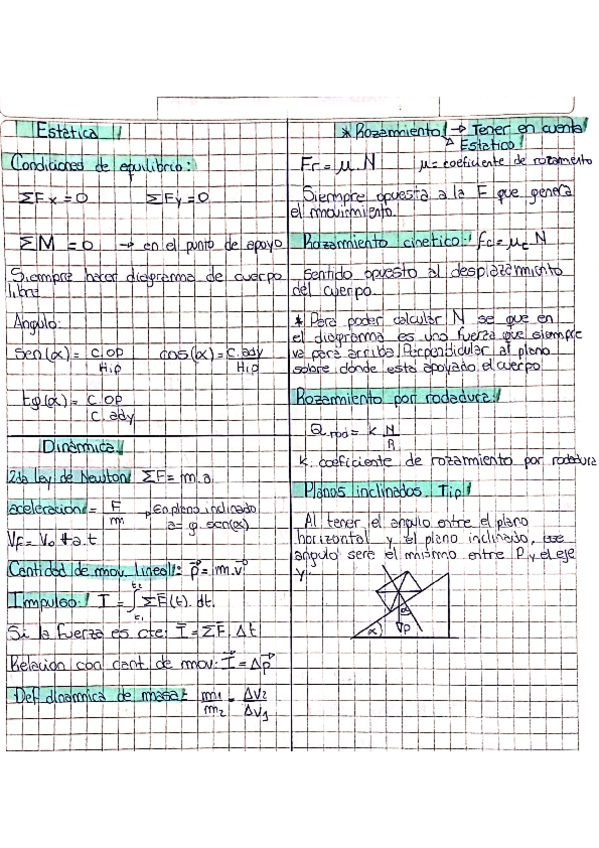 Estática
Condiciones de equilibrio:
ΣFx = 0 ΣFy = 0
ΣM = 0 → en el punto de apoyo
Siempre hacer diagrama de cuerpo
libre
Angulo:
sen(α) = C.OP / Hip cos(α) = C.ady / Hip
tg(α) = C.OP / C.ady
Dinámica
2da ley de Newton ΣF = m.a
aceleracion = F / m , En plano inclinado
a = g.sen(α)
Vf = Vo + a.t
Cantidad de mov. lineal: p⃗ = m.v⃗
Impulso: I⃗ = ∫t1 t2 ΣF⃗(t).dt.
Si la fuerza es cte: I⃗ = ΣF⃗.Δt
Relacion con cant. de mov: I⃗ = Δp⃗
Def dinamica de masa: m1 / m2 = ΔV2 / ΔV1
* Rozamiento → Tener en cuenta
Estatico:
Fr = μ.N μ = coeficiente de rozamiento
Siempre opuesta a la F que genera
el movimiento.
Rozamiento cinetico: fc = μc N
Sentido opuesto al desplazamiento
del cuerpo.
* Para poder calcular N se que en
el diagrama es una fuerza que siempre
va para arriba Perpendicular al plano
sobre donde esta apoyado el cuerpo
Rozamiento por rodadura:
Q rod = K N / R
K: coeficiente de rozamiento por rodadura
Planos inclinados Tip
Al tener el angulo entre el plano
horizontal y el plano inclinado, ese
angulo sere el mismo entre P y el eje
y.
α
P